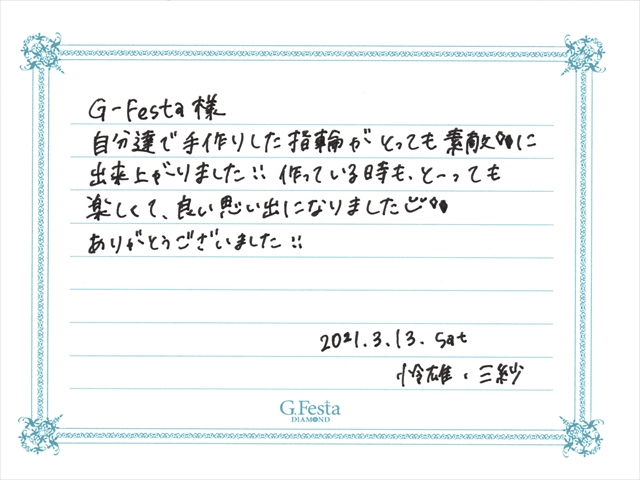 G-Festa様
自分達で手作りした指輪がとっても素敵♥♥に
出来上がりました!! 作っている時も、とーっても
楽しくて、良い思い出になりました♥♥
ありがとうございました!!
2021.3.13. Sat
怜雄・三紗
G.Festa
DIAMOND